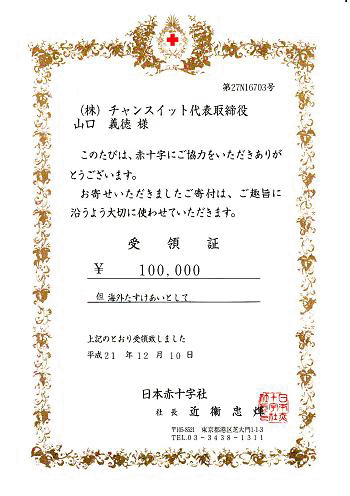 第27N16703号
(株) チャンスイット代表取締役
山口 義徳 様
このたびは、赤十字にご協力をいただきありが
とうございます。
お寄せいただきましたご寄付は、ご趣旨に
沿うよう大切に使わせていただきます。
受領証
¥ 100,000
但 海外たすけあいとして
上記のとおり受領致しました
平成21 年 12 月 10 日
日本赤十字社
社長 近衞忠煇
〒105-8521 東京都港区芝大門1-1-3
TEL.03-3438-1311